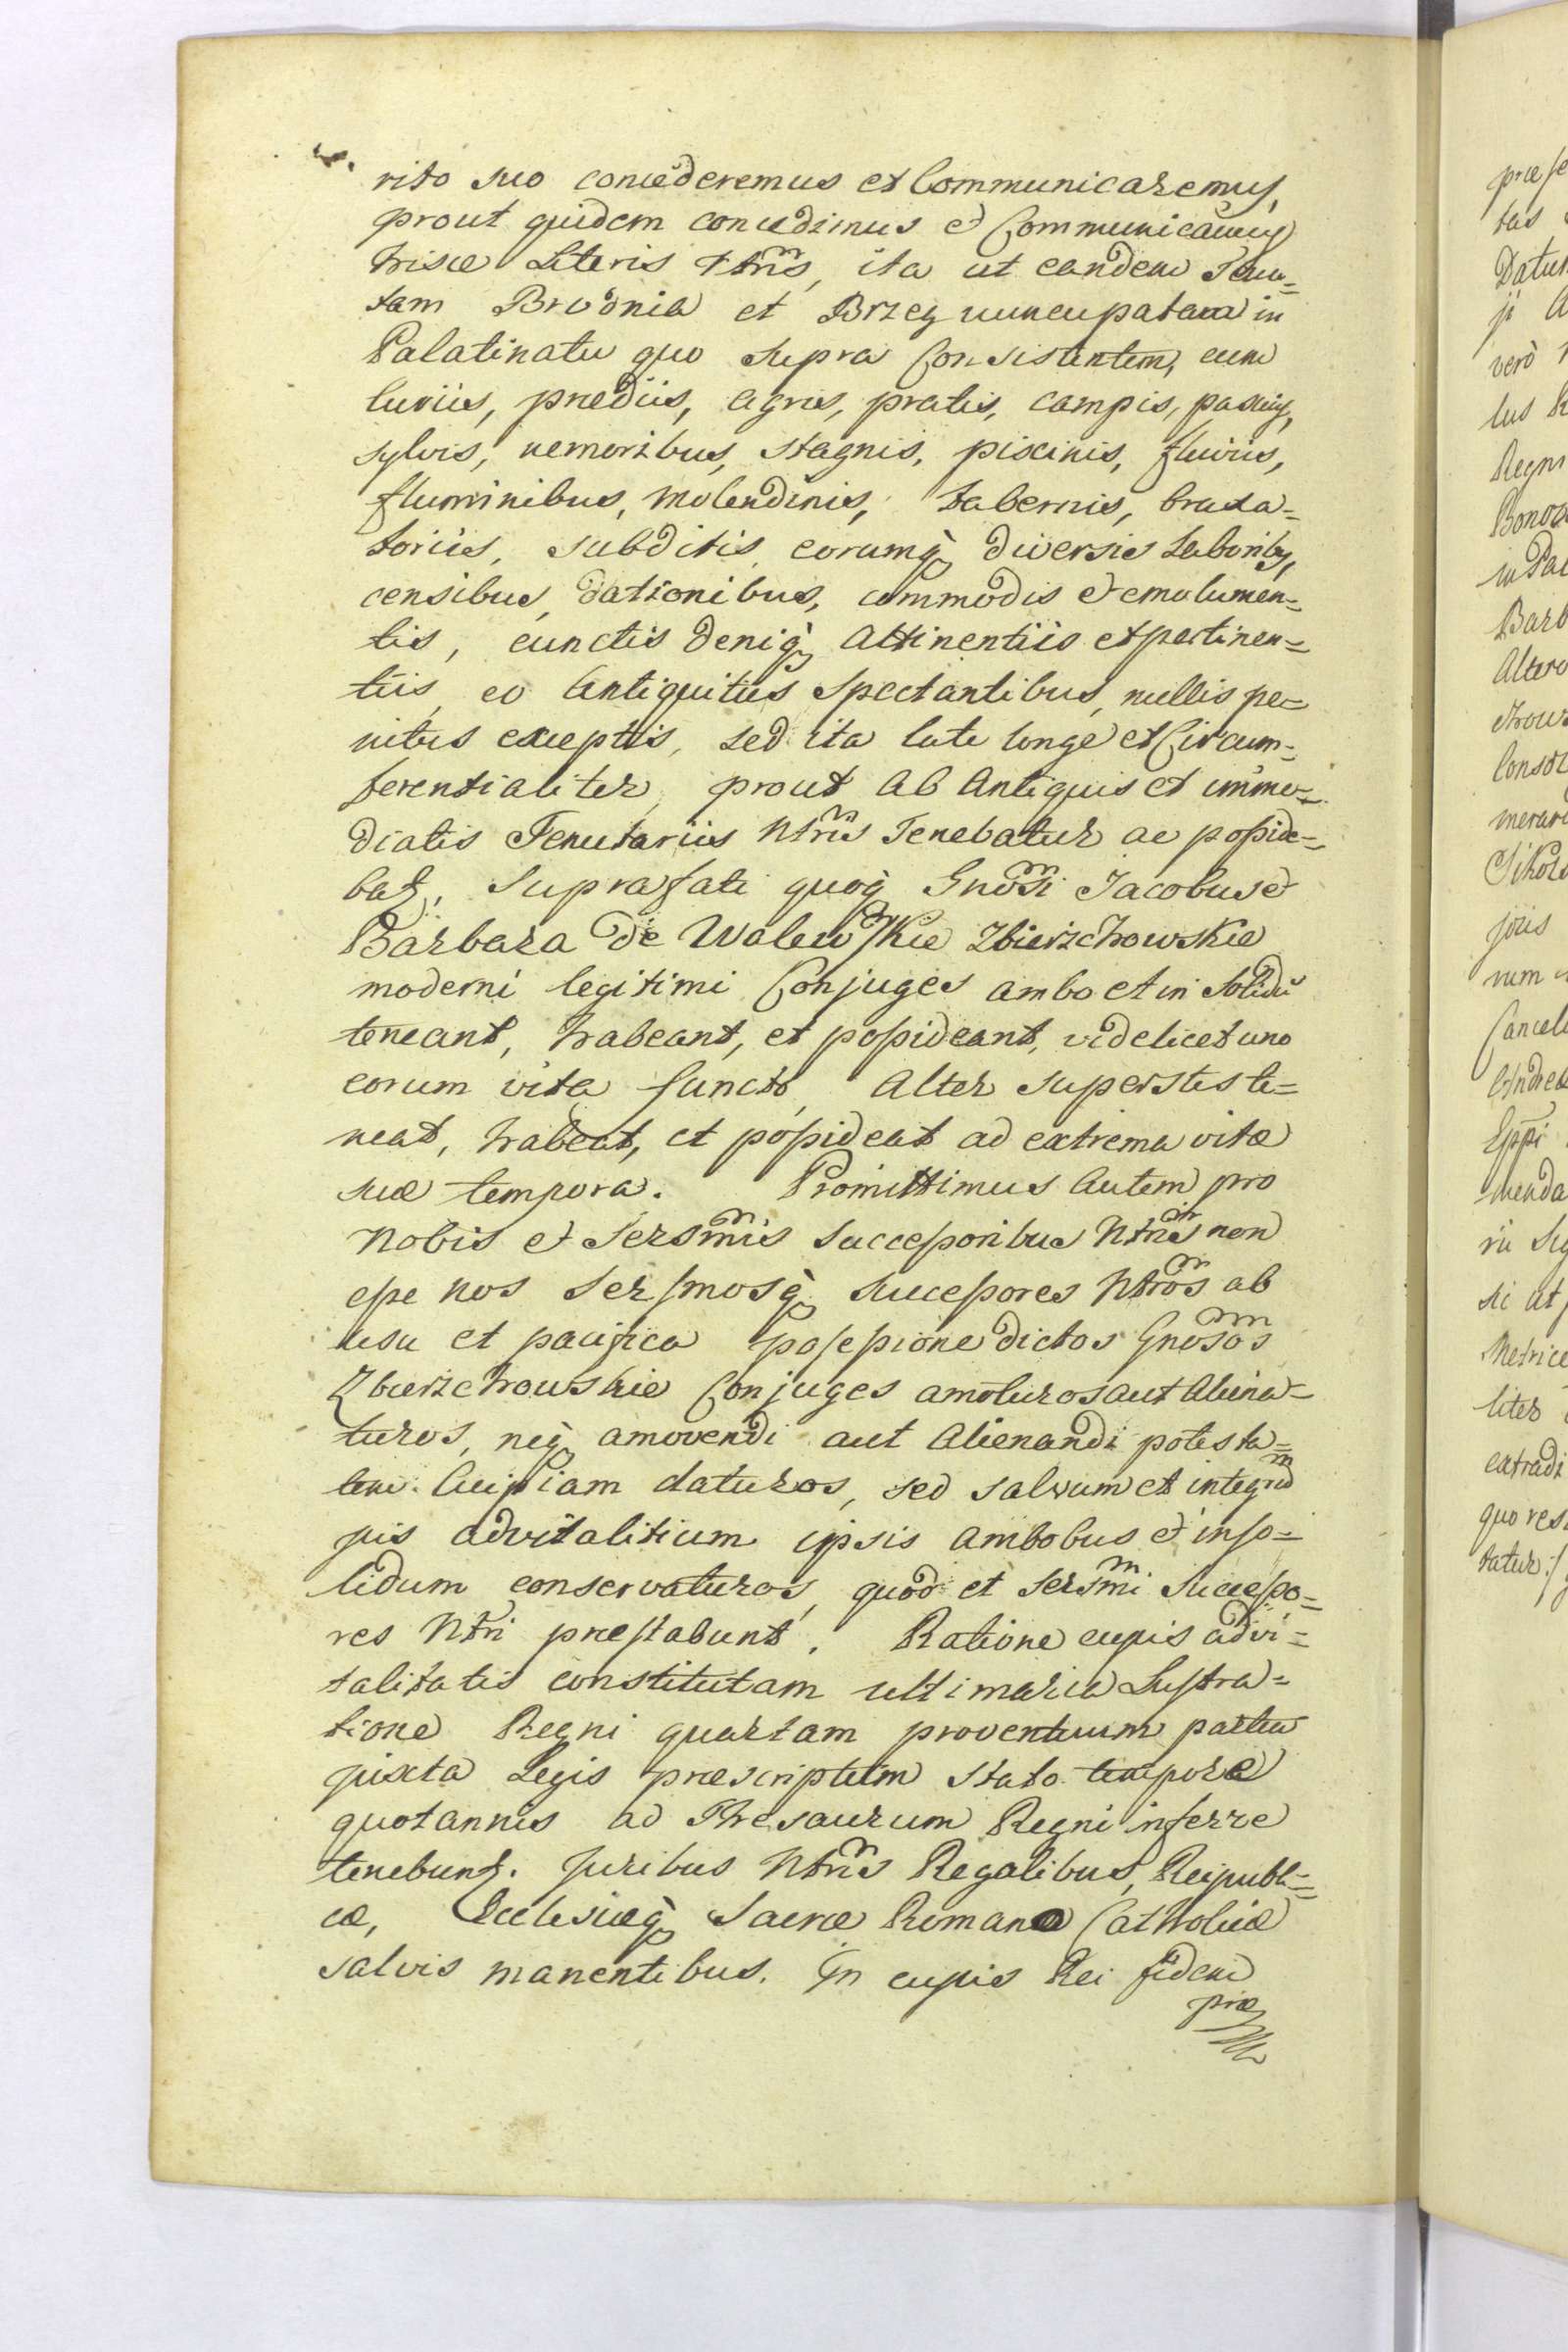 rito suo concederemus et Communicaremus,
prout quidem concedimus et Communicamus
hisce Literis Ntris, ita ut eandem Tenu=
tam Brodnia et Brzeg nuncupatam in
Palatinatu quo supra Consistentem, cum
curiis, prædiis, agris, pratis, campis, pascuis,
sylvis, nemoribus, stagnis, piscinis, fluviis,
fluminibus, molendinis, tabernis, braxa=
toriis, subditis, eorumq diversis Laboribus,
censibus, dationibus, commodis et emolumen=
tis, cunctis deniq attinentiis et pertinen=
tiis, eo antiquitus spectantibus, nullis pe=
nitus exceptis, sed ita late longe et Circum=
ferentialiter, prout ab antiquis et imme=
diatis Tenutariis Ntris Tenebatur ac posside=
batr, suprafati quoq Gnosi Jacobus et
Barbara de Walewskie Zbierzchowskie
moderni legitimi Conjuges ambo et in solidū
teneant, habeant, et possideant, videlicet uno
eorum vita functo, alter superstes te=
neat, habeat, et possideat ad extrema vitæ
suæ tempora. Promittimus autem pro
Nobis et Sersmis Successoribus Ntris non
esse nos Sersmosq Successores Ntros ab
usu et pacifica possessione dictos Gnosos
Zbierzchowskie Conjuges amoturos aut aliena=
turos, neq amovendi aut alienandi potesta=
tem. Cuipiam daturos, sed salvum et integrū
jus advitalitium ipsis ambobus et in so=
lidum conservaturos, quod et Sersmi Successo=
res Ntri præstabunt. Ratione cujus advi=
talitatis constitutam ultimaria Lustra=
tione Regni quartam proventuum partem
juxta Legis præscriptum stato tempore
quotannis ad Thesaurum Regni inferre
tenebuntr. Juribus Ntris Regalibus, Reipubli=
cæ, Ecclesiæq Sacræ Romanæ Catholicæ
salvis manentibus. In cujus Rei fidem
præ